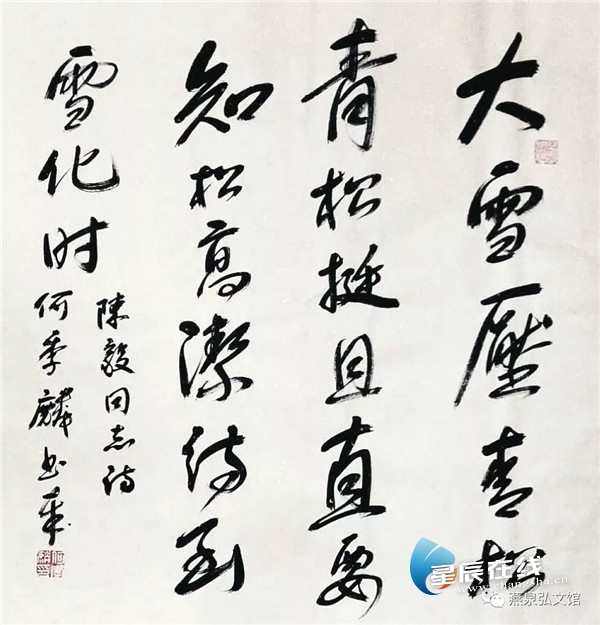 大雪壓青松
青松挺且直要
知松高潔待到
雪化时
陳毅同志诗
何季麟书
星辰在线
www.changsha.cn
燕泉弘文馆